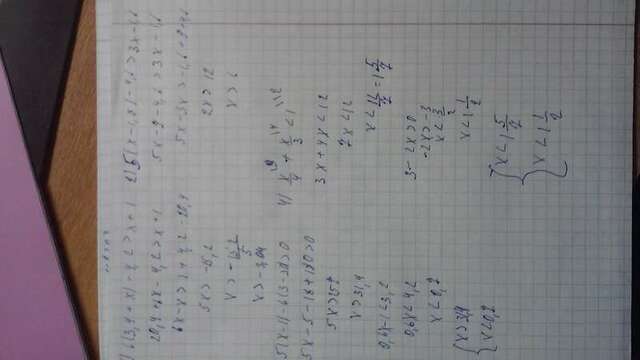 1) 6(3,4+x)-4,2>x+1
20,4+6x-4,2>x+1
6x-x>1+4,2-20,4
5x>-15,2
x>-15,2/5
x>-3,04
5(x-1)-6(3-2x)>0
5x>57
x>3,4
0,6x-1<3,2
0,6x<4,2
x<0,2
{x>3,4
x<0,2
2) 5(x-1,8)-4,6>3x-1,6
5x-9-4,6>3x-1,6
5x-3x>-1,6+9+4,6
2x>12
x>6
4) x/4+x/3<1
3x+4x<12
7x<12
x<12/7=1 5/7
3-2x>0
-2x>-3
x<3/2
x<1 1/2
{x<1 5/7
x<1 1/2